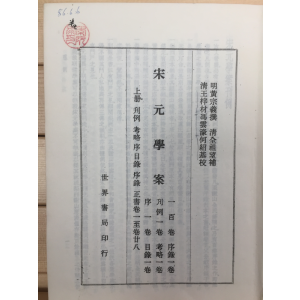 明黃宗羲撰 清全祖望補
清王梓材馮雲濠何紹基校
宋元學案
一百卷 序錄一卷
刋例一卷 考略一卷
序一卷 目錄一卷
上册 刋例 考略 序 目錄 序錄 正書卷一至卷廿八
世界書局印行